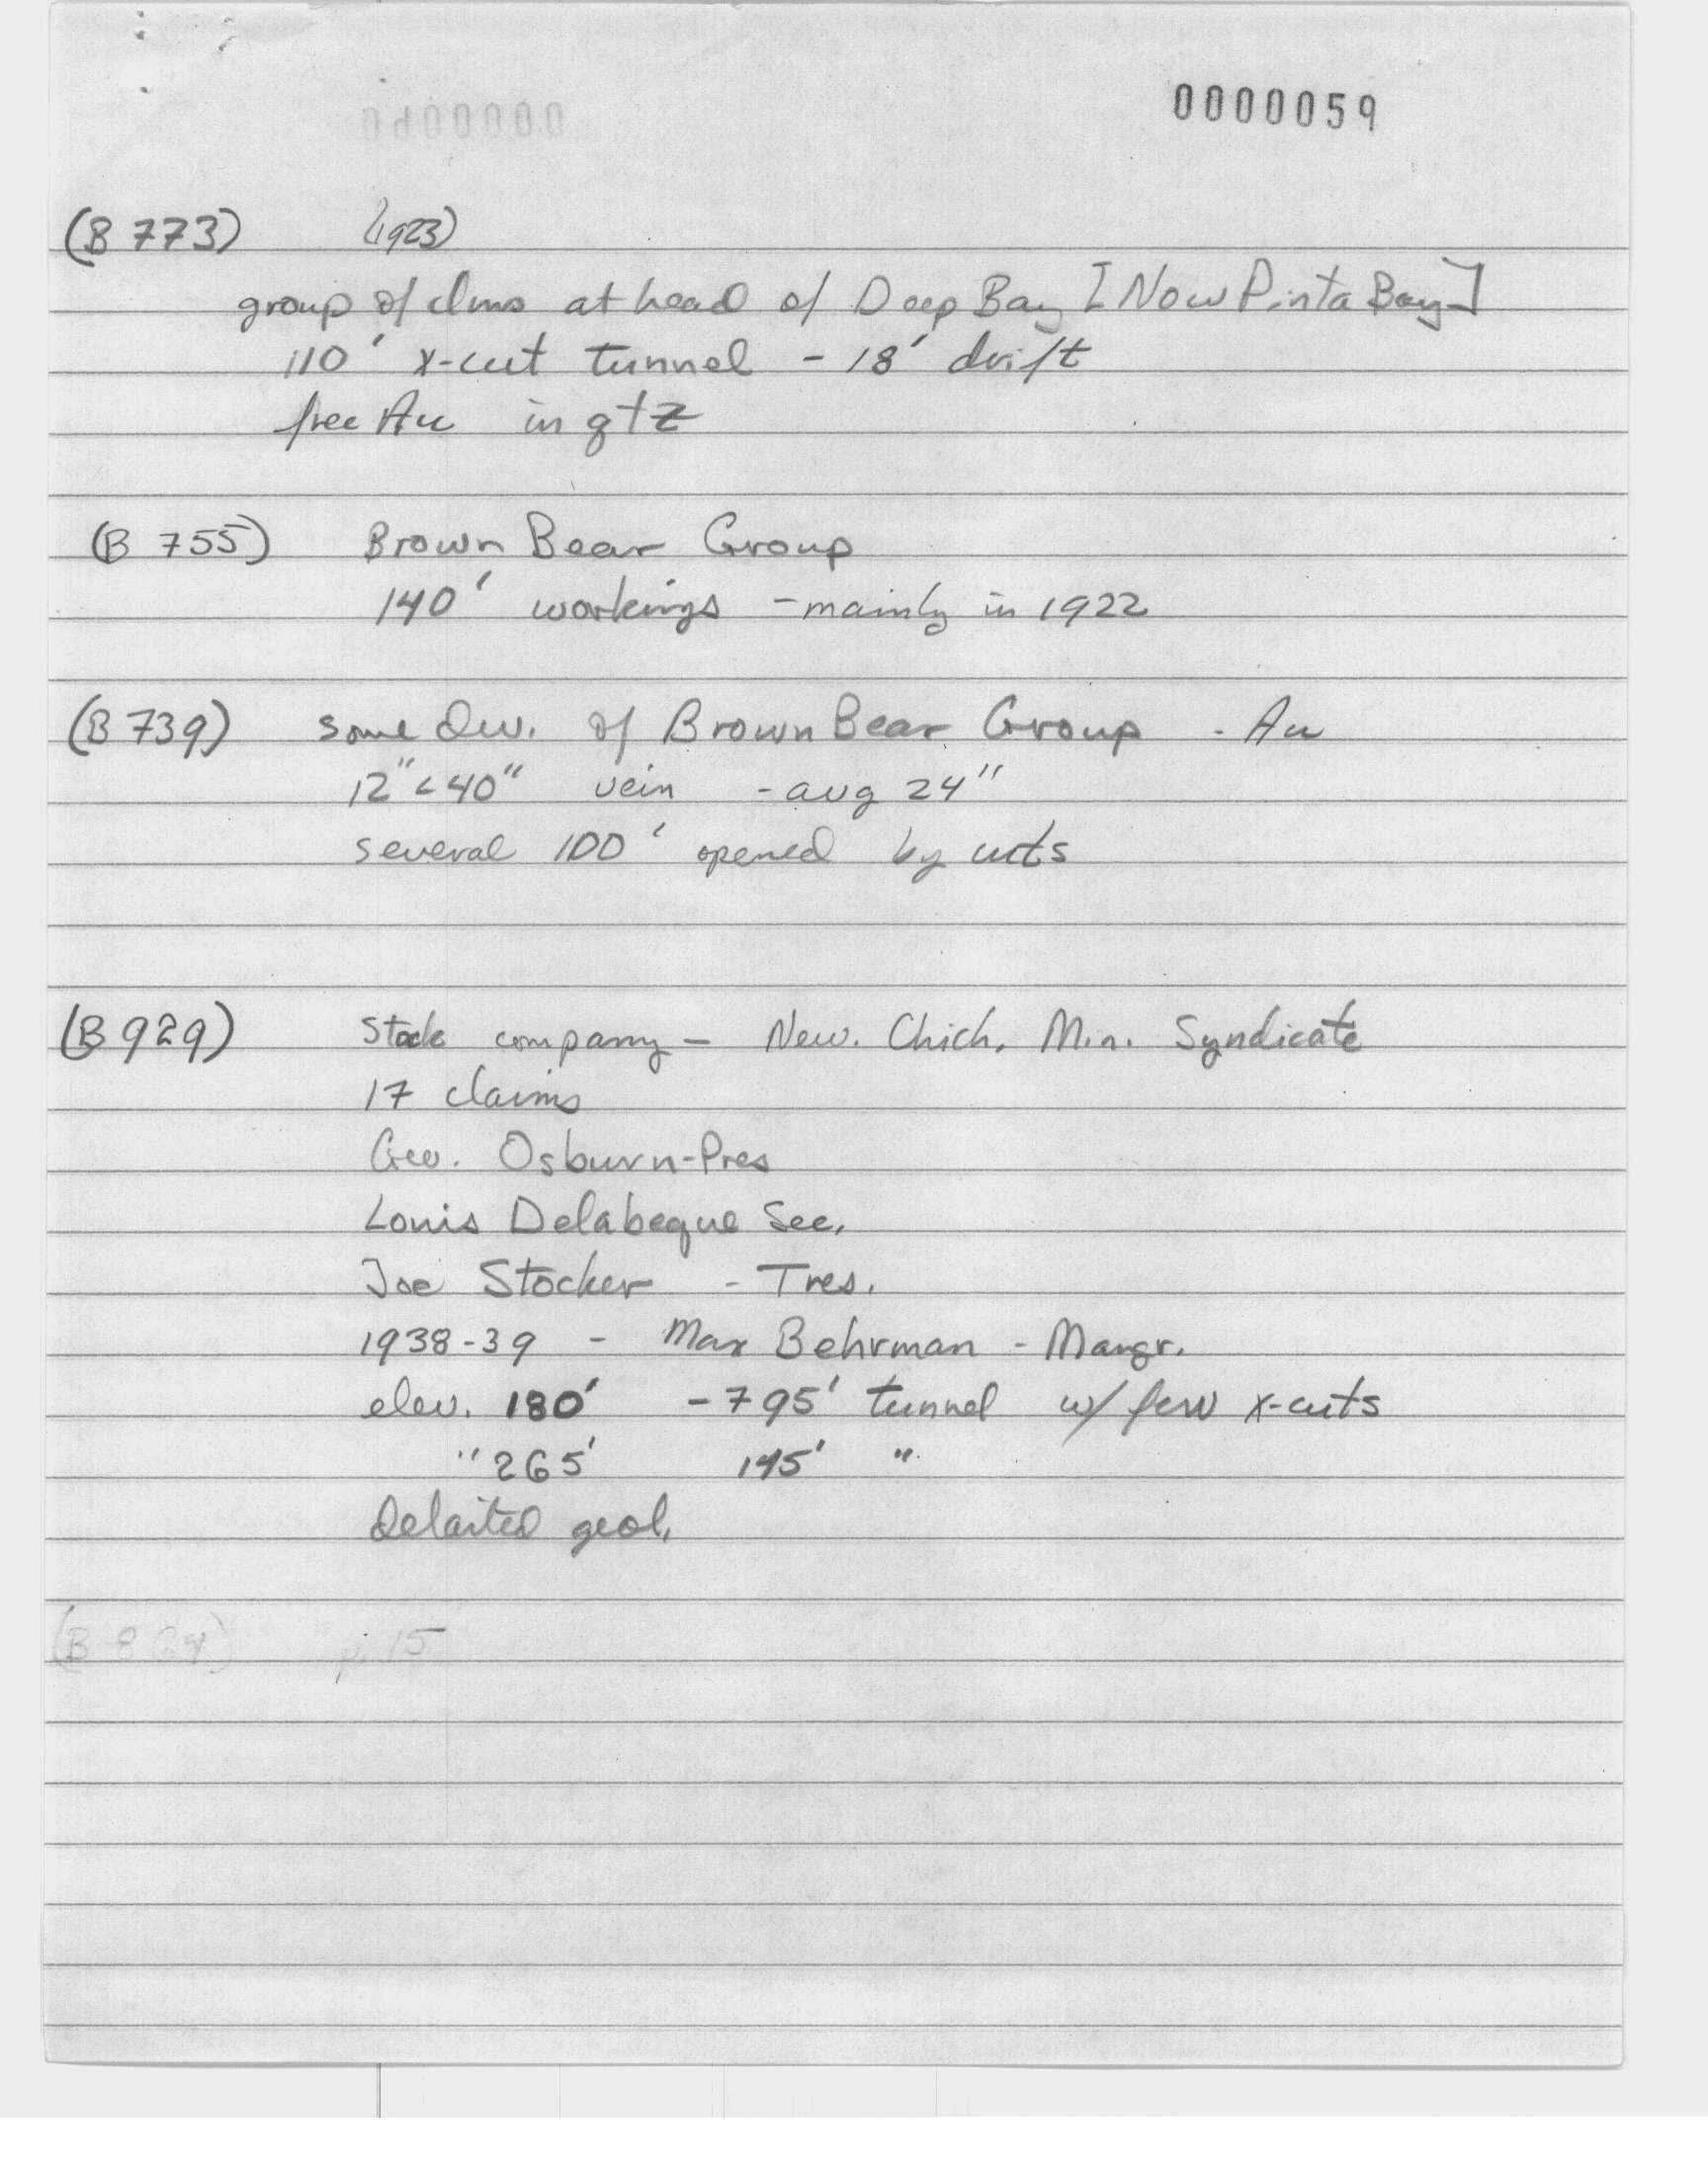 0000059
(B 773) (1923)
group of clms at head of Deep Bay [Now Pinta Bay]
110' x-cut tunnel - 18' drift
free Au in qtz
(B 755) Brown Bear Group
140' workings - mainly in 1922
(B 739) some dev. of Brown Bear Group - Au
12" < 40" vein - avg 24"
several 100' opened by cuts
(B 929) Stock company - New. Chich. Min. Syndicate
17 claims
Geo. Osburn-Pres
Louis Delabeque Sec.
Joe Stocker - Tres.
1938-39 - Max Behrman - Mangr.
elev. 180' - 795' tunnel w/ few x-cuts
" 265' "
Delaited geol.
p. 15